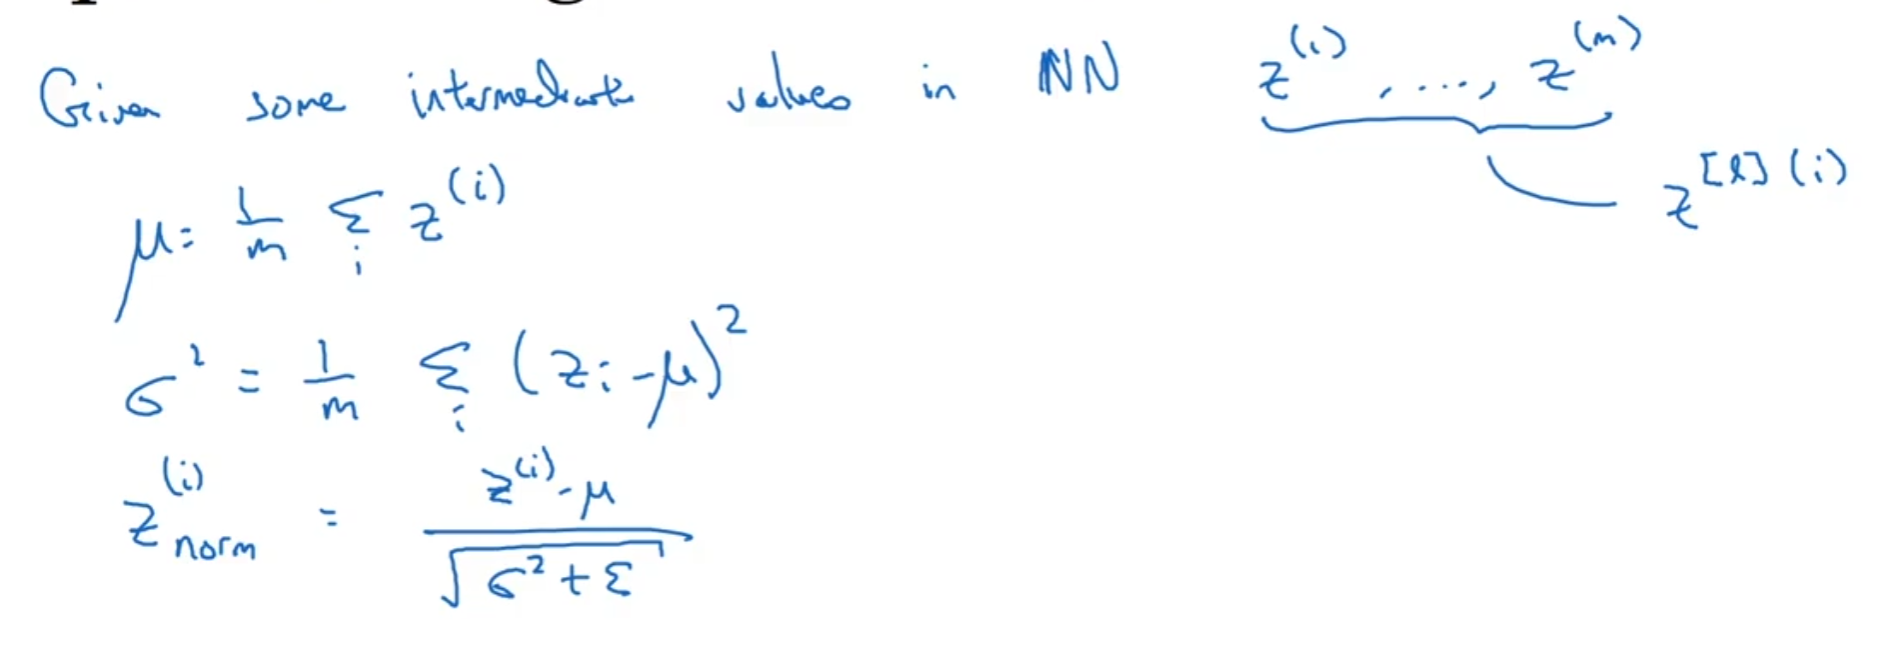 Given some intermediate values in NN z^(1), ...., z^(m)
z^[l](i)
μ = 1/m Σ_i z^(i)
σ^2 = 1/m Σ_i (z_i - μ)^2
z_norm^(i) = (z^(i) - μ) / √(σ^2 + ε)